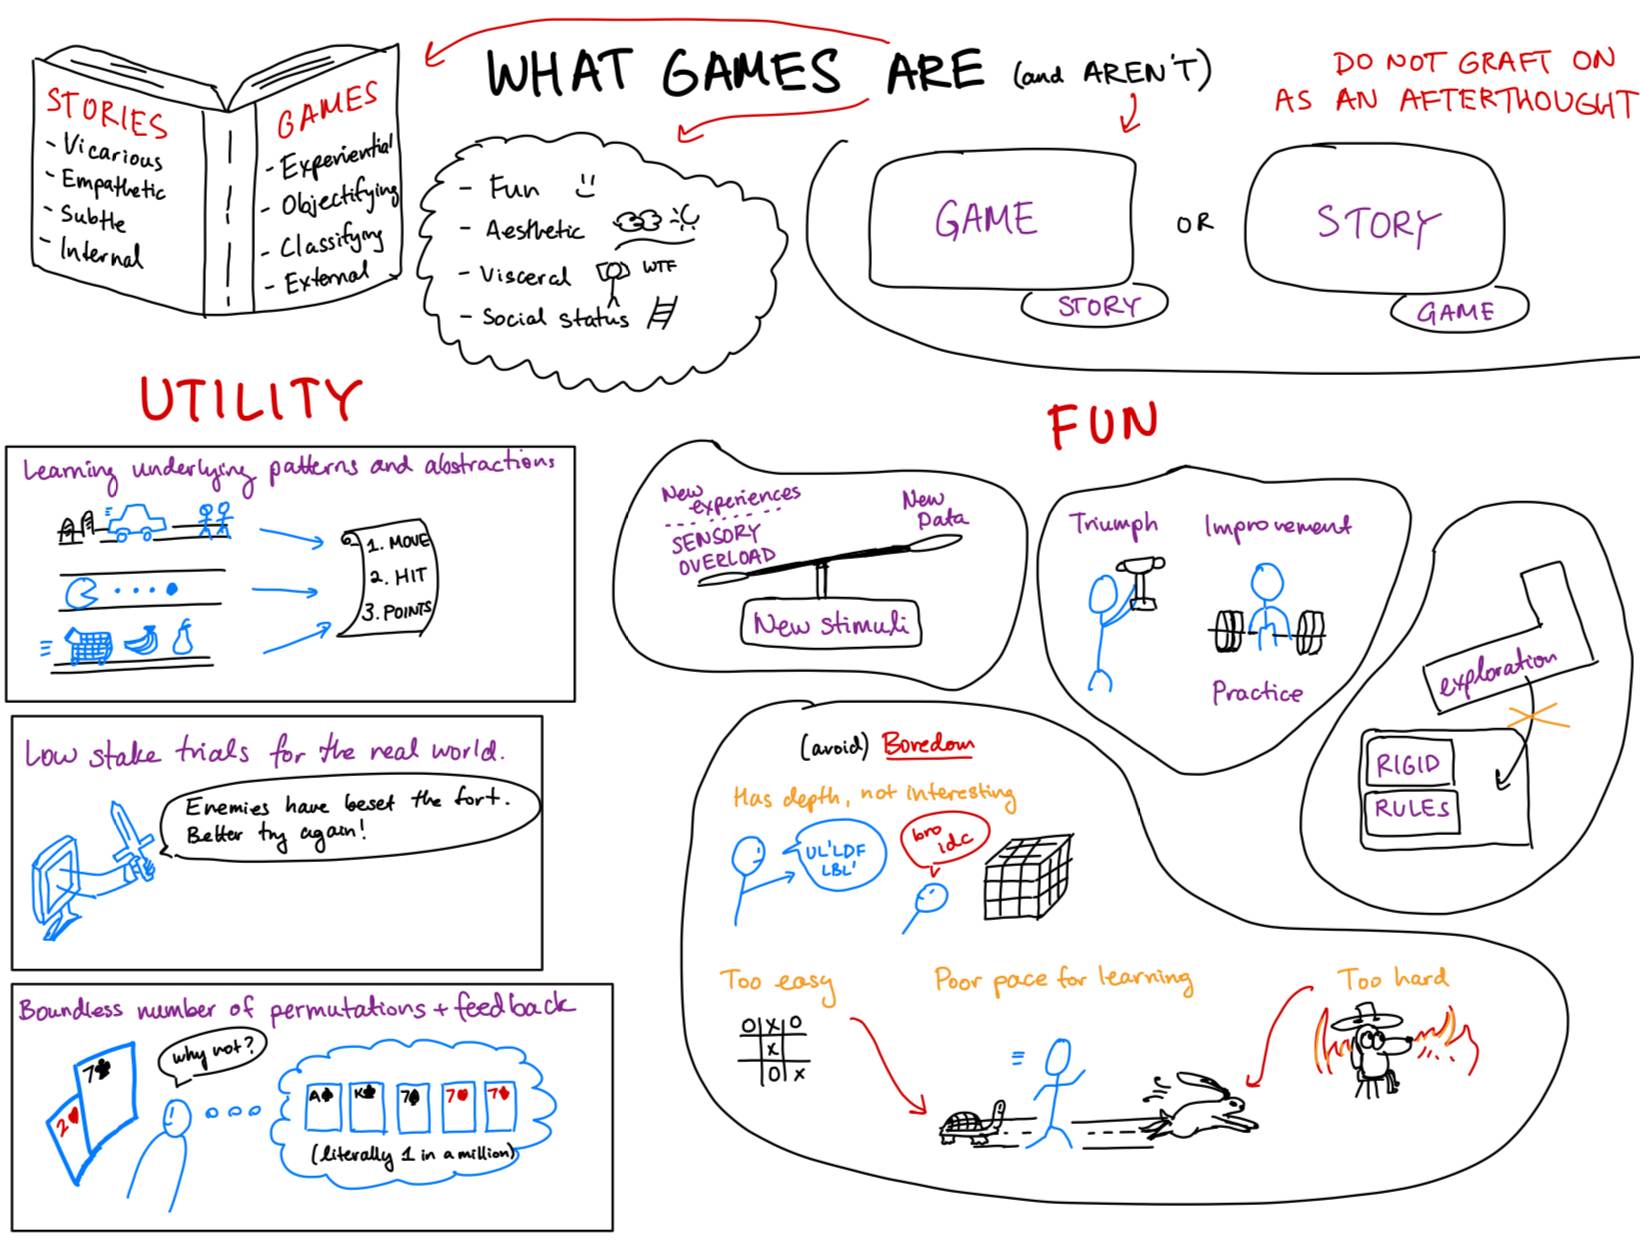 WHAT GAMES ARE (and AREN'T)
STORIES
- Vicarious
- Empathetic
- Subtle
- Internal
GAMES
- Experiential
- Objectifying
- Classifying
- External
- Fun
- Aesthetic
- Visceral WTF
- Social status
DO NOT GRAFT ON
AS AN AFTERTHOUGHT
GAME
STORY
OR
STORY
GAME
UTILITY
Learning underlying patterns and abstractions
1. MOVE
2. HIT
3. POINTS
Low stake trials for the real world.
Enemies have beset the fort.
Better try again!
Boundless number of permutations + feedback
7♣
2♥
why not?
A♠ K♣ 7♠ 7♥ 7♦
(literally 1 in a million)
FUN
New
experiences
SENSORY
OVERLOAD
New
Data
New stimuli
Triumph
Improvement
Practice
exploration
RIGID
RULES
(avoid) Boredom
Has depth, not interesting
UL'LDF
LBL'
bro
idc
Too easy
O X O
X
O X
Poor pace for learning
Too hard